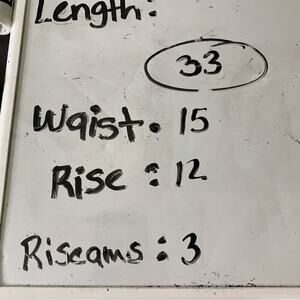 Length:
33
Waist. 15
Rise: 12
Riseams: 3